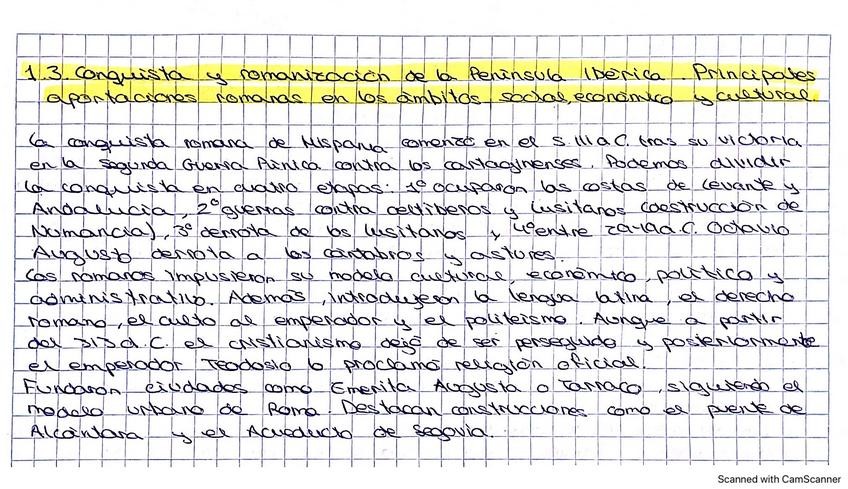 1.3. Conquista y romanización de la Península Ibérica. Principales
aportaciones romanas en los ámbitos social, económico y cultural.
La conquista romana de Hispania comenzó en el S. III a.C. tras su victoria
en la Segunda Guerra Púnica contra los cartaginenses. Podemos dividir
la conquista en cuatro etapas: 1º ocuparon las costas de Levante y
Andalucía, 2º guerras contra celtíberos y lusitanos (destrucción de
Numancia), 3º derrota de los lusitanos y 4º entre 29-19 a.C. Octavio
Augusto derrota a los cántabros y astures.
Los romanos impusieron su modelo cultural, económico, político y
administrativo. Además, introdujeron la lengua latina, el derecho
romano, el culto al emperador y el politeísmo. Aunque a partir
del 313 d.C. el cristianismo dejó de ser perseguido y posteriormente
el emperador Teodosio lo proclamó religión oficial.
Fundaron ciudades como Emerita Augusta o Tarraco, siguiendo el
modelo urbano de Roma. Destacan construcciones como el puente de
Alcántara y el Acueducto de Segovia.
Scanned with CamScanner